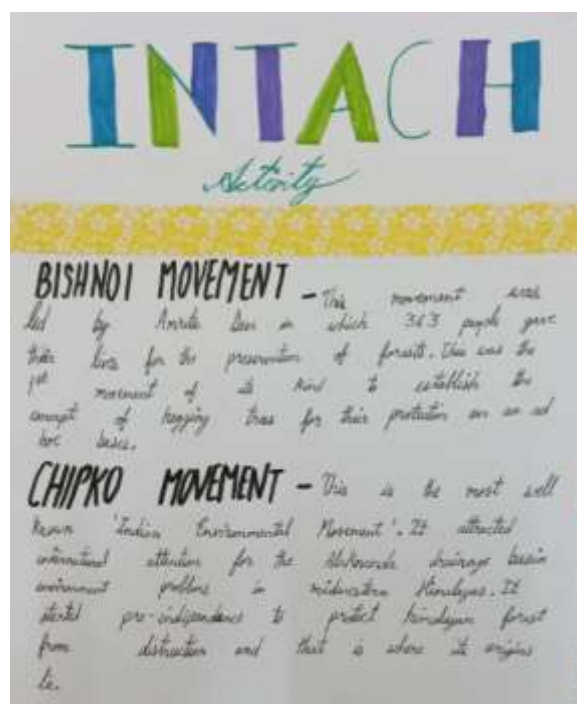 INTACH
Activity
BISHNOI MOVEMENT - This movement was
led by Amrita Devi in which 363 people gave
their lives for the preservation of forests. This was the
1st movement of its kind to establish the
concept of hugging trees for their protection on an ad
hoc bases.
CHIPKO MOVEMENT - This is the most well
known 'Indian Environmental Movement'. It attracted
international attention for the Alaknanda drainage basin
environment problems in midwestern Himalayas. It
started pre-independence to protect himalayan forest
from distruction and that is where its origins
lie.